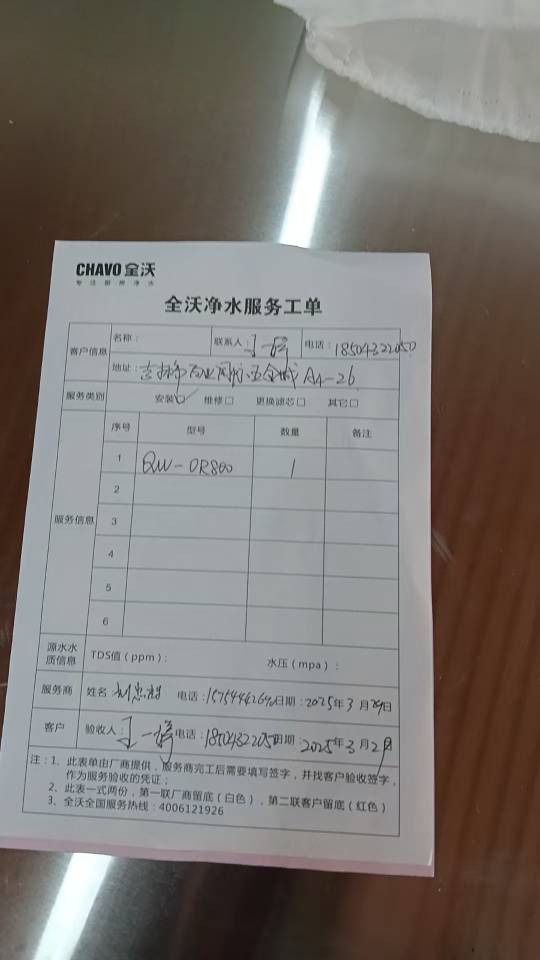 CHAVO 全沃
专注厨房净水
全沃净水服务工单
客户信息 名称： 联系人：王一 电话：18504322050
地址：吉林市 五金城 A4-26
服务类别 安装☑ 维修□ 更换滤芯□ 其它□
服务信息 序号 型号 数量 备注
1 QW-OR800 1
2
3
4
5
6
源水水质信息 TDS值（ppm）： 水压（mpa）：
服务商 姓名 刘 电话： 日期：2025年3月29日
客户 验收人：王一 电话：18504322050 日期：2025年3月29日
注：1、此表单由厂商提供，服务商完工后需要填写签字，并找客户验收签字，
作为服务验收的凭证；
2、此表一式两份，第一联厂商留底（白色），第二联客户留底（红色）
3、全沃全国服务热线：4006121926